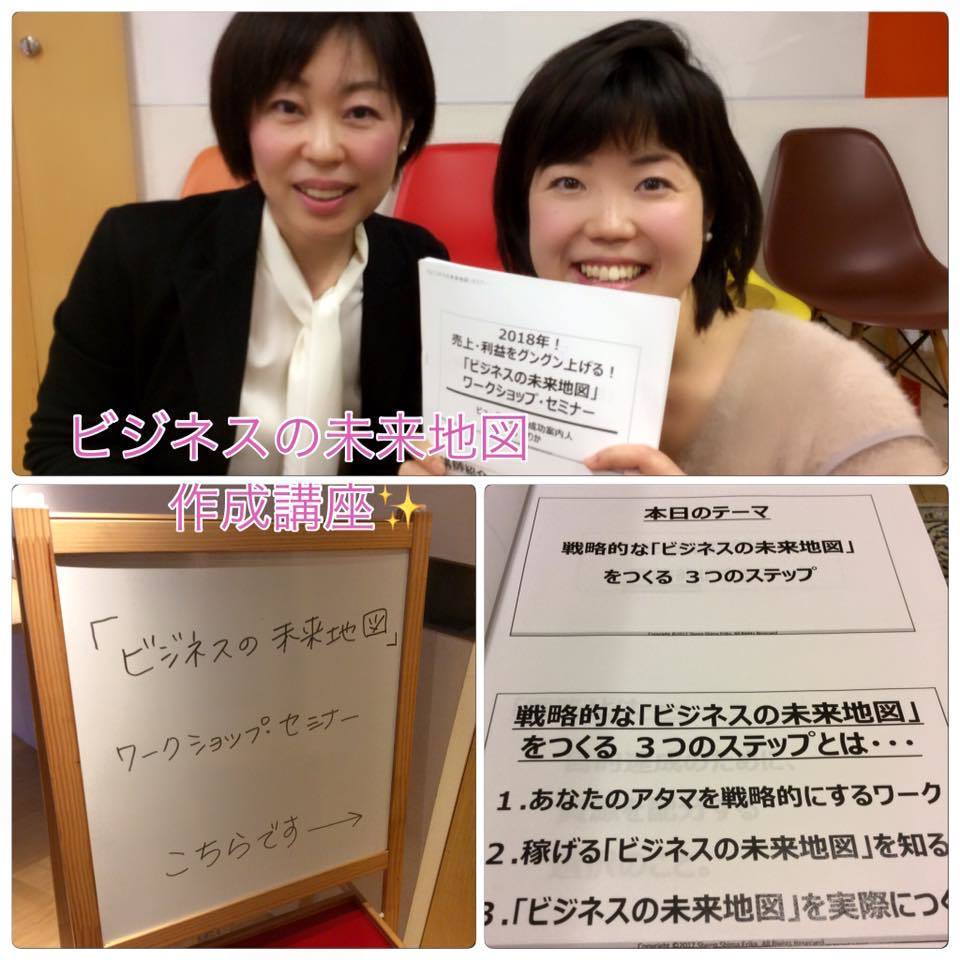 2018年!
売上・利益をグングン上げる!
「ビジネスの未来地図」
ワークショップ・セミナー
成功案内人
ビジネスの未来地図
作成講座✨
「ビジネスの未来地図」
ワークショップ・セミナー
こちらです→
本日のテーマ
戦略的な「ビジネスの未来地図」
をつくる 3つのステップ
戦略的な「ビジネスの未来地図」
をつくる 3つのステップとは・・・
1.あなたのアタマを戦略的にするワーク
2.稼げる「ビジネスの未来地図」を知る
3.「ビジネスの未来地図」を実際につく